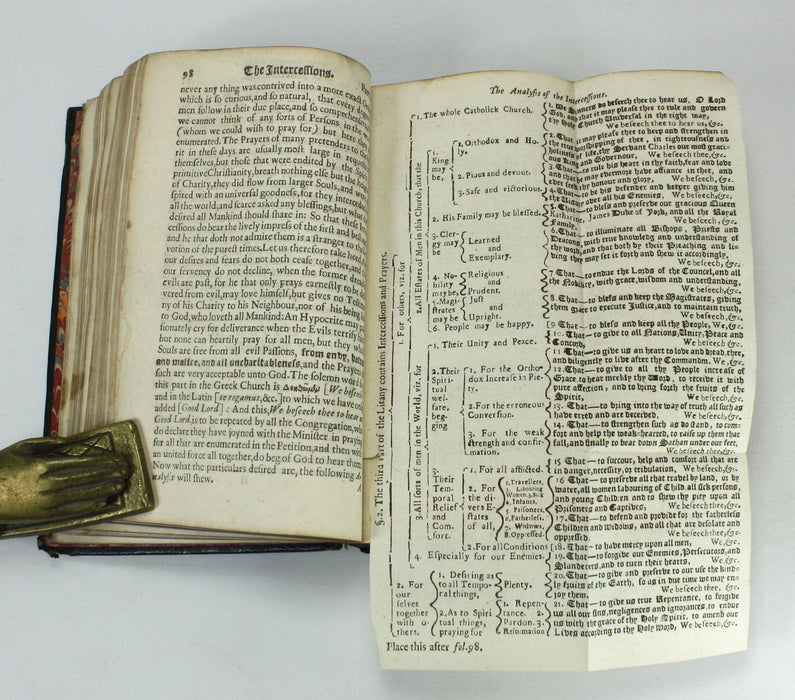 98 The Intercessions.
never any thing was contrived into a more exact
which is so curious, and so natural, that every
men follow in their due place, and so comprehensive
we cannot think of any sorts of Persons in the
(whom we could wish to pray for) but here
enumerated. The Prayers of many pretenders to
rit in these days are usually most large in
themselves, but those that were endited by the Spirit
primitive Christianity, breath nothing else but the
of Charity, they did flow from larger Souls, and
spired with an universal goodness, for they intended
all the world, and scarce asked any blessings, but what
desired all Mankind should share in: So that these
cessions do bear the lively impress of the first and best
and he that doth not admire them is a stranger to the
votion of the purest times. Let us therefore take heed,
our desires and fears do not both cease together, and
our fervency do not decline, when the former
evils are past, for he that only prays earnestly to be
vered from evil, may love himself, but gives no
ny of his Charity to his Neighbour, nor of his being
to God, who loveth all Mankind: An Hypocrite may
sionately cry for deliverance when the Evils terrify
but none can heartily pray for all men, but they
Souls are free from all evil Passions, from envy, hatred
and malice, and all uncharitableness, and the Prayers
such are very acceptable unto God. The solemn word
this part in the Greek Church is [We beseech
and in the Latin [te rogamus, &c.] to which we have
added [Good Lord]: And this, We beseech thee to hear us
Good Lord, is to be repeated by all the Congregation, who
do declare they have joyned with the Minister in praying
for all that are enumerated in the Petition, and then with
an united force all together, do beg of God to hear them
Now what the particulars desired are, the following A-
nalysis will shew.
The Analysis of the Intercessions.
§. 2. The third Part of the Litany contains Intercessions and Prayers.
1. For others, viz. for
1. The whole Catholick Church.
2. All Estates of Men in this Church, that the
1. King may be,
1. Orthodox and Ho-
ly.
2. Pious and devout.
3. Safe and victorious.
2. His Family may be blessed.
3. Cler-
gy may
be
Learned
and
Exemplary.
4. No-
bility
may be
Religious
and
Prudent.
5. Magi-
strates
may be
Just
and
Upright.
6. People may be happy.
3. All sorts of men in the World, viz. for
1. Their Unity and Peace.
2. Their
Spiri-
tual
wel-
fare,
beg-
ging
1. For the Ortho-
dox Increase in Pie-
ty.
2. For the erroneous
Conversion.
3. For the weak
strength and confir-
mation.
3.
Their
Tem-
poral
Relief
and
Com-
fort.
1. For all afflicted.
2. For
the di-
vers E-
states
of all,
1. Travellers,
2. Labouring
Women, 3. Sick
4. Infants,
5. Prisoners,
6. Fatherless.
7. Widows.
8. Oppressed.
2. For all Conditions
4. Especially for our Enemies.
2. For
our
selves
together
with o-
thers.
1. Desiring as
to all Tempo-
ral things,
Plenty.
2. As to Spiri
tual things,
praying for
1. Repen-
tance. 2.
Pardon. 3.
Reformation
1. We Sinners do beseech thee to hear us, O Lord
God, and that it may please thee to rule and govern
thy Holy Church Universal in the right way,
We beseech thee to hear us, &c.
2. That it may please thee to keep and strengthen in
the true worshipping of thee, in righteousness and
holiness of life, thy Servant Charles our most graci-
ous King and Governour, We beseech thee, &c.
3. That—to rule his heart in thy faith, fear and love
and that he may evermore have affiance in thee, and
ever seek thy honour and glory, We beseech, &c.
4. That—to be his defender and keeper giving him
the Victory over all his Enemies, We beseech, &c.
5. That—to bless and preserve our gracious Queen
Katharine, James Duke of York, and all the Royal
Family, We beseech, &c.
6. That—to illuminate all Bishops, Priests and
Deacons, with true knowledg and understanding of
thy word, and that both by their Preaching and li-
ving they may set it forth and shew it accordingly,
We beseech, &c.
7. That—to endue the Lords of the Councel, and all
the Nobility, with grace, wisdom and understanding,
We beseech, &c.
8. That—to bless and keep the Magistrates, giving
them grace to execute Justice, and to maintain truth,
We beseech, &c.
9. That—to bless and keep all thy People, We, &c.
10. That—to give to all Nations, Unity, Peace and
Concord, We beseech &c.
11 That—to give us an heart to love and dread, thee,
and diligently to live after thy Commandm. We, &c.
12. That—to give to all thy People increase of
Grace, to hear meekly thy Word, to receive it with
pure affection, and to bring forth the fruits of the
Spirit, We beseech, &c.
13. That—to bring into the way of truth all such as
have erred and are deceived, We beseech, &c.
14. That—to strengthen such as do stand, to com-
fort and help the weak-hearted, to raise up them that
fall, and finally to beat down Sathan under our feet,
We beseech thee, &c.
15 That—to succour, help and comfort all that are
in danger, necessity, or tribulation, We beseech, &c.
16 That—to preserve all that travel by land, or by
water, all women labouring of Child, all sick persons,
and young Children and to shew thy pity upon all
Prisoners and Captives, We beseech thee, &c.
17. That—to defend and provide for the fatherless
Children and Widows, and all that are desolate and
oppressed. We beseech thee, &c.
18. That—to have mercy upon all men, We, &c.
19. That—to forgive our Enemies, Persecutors, and
Slanderers, and to turn their hearts, We, &c.
20. That—to give and preserve to our use the kind-
ly fruits of the Earth, so as in due time we may en-
joy them. We beseech thee, &c.
21. That—to give us true Repentance, to forgive
us all our sins, negligences and ignorances, to endue
us with the grace of thy Holy Spirit, to amend our
Lives according to thy Holy Word, We beseech, &c.
Place this after fol. 98.